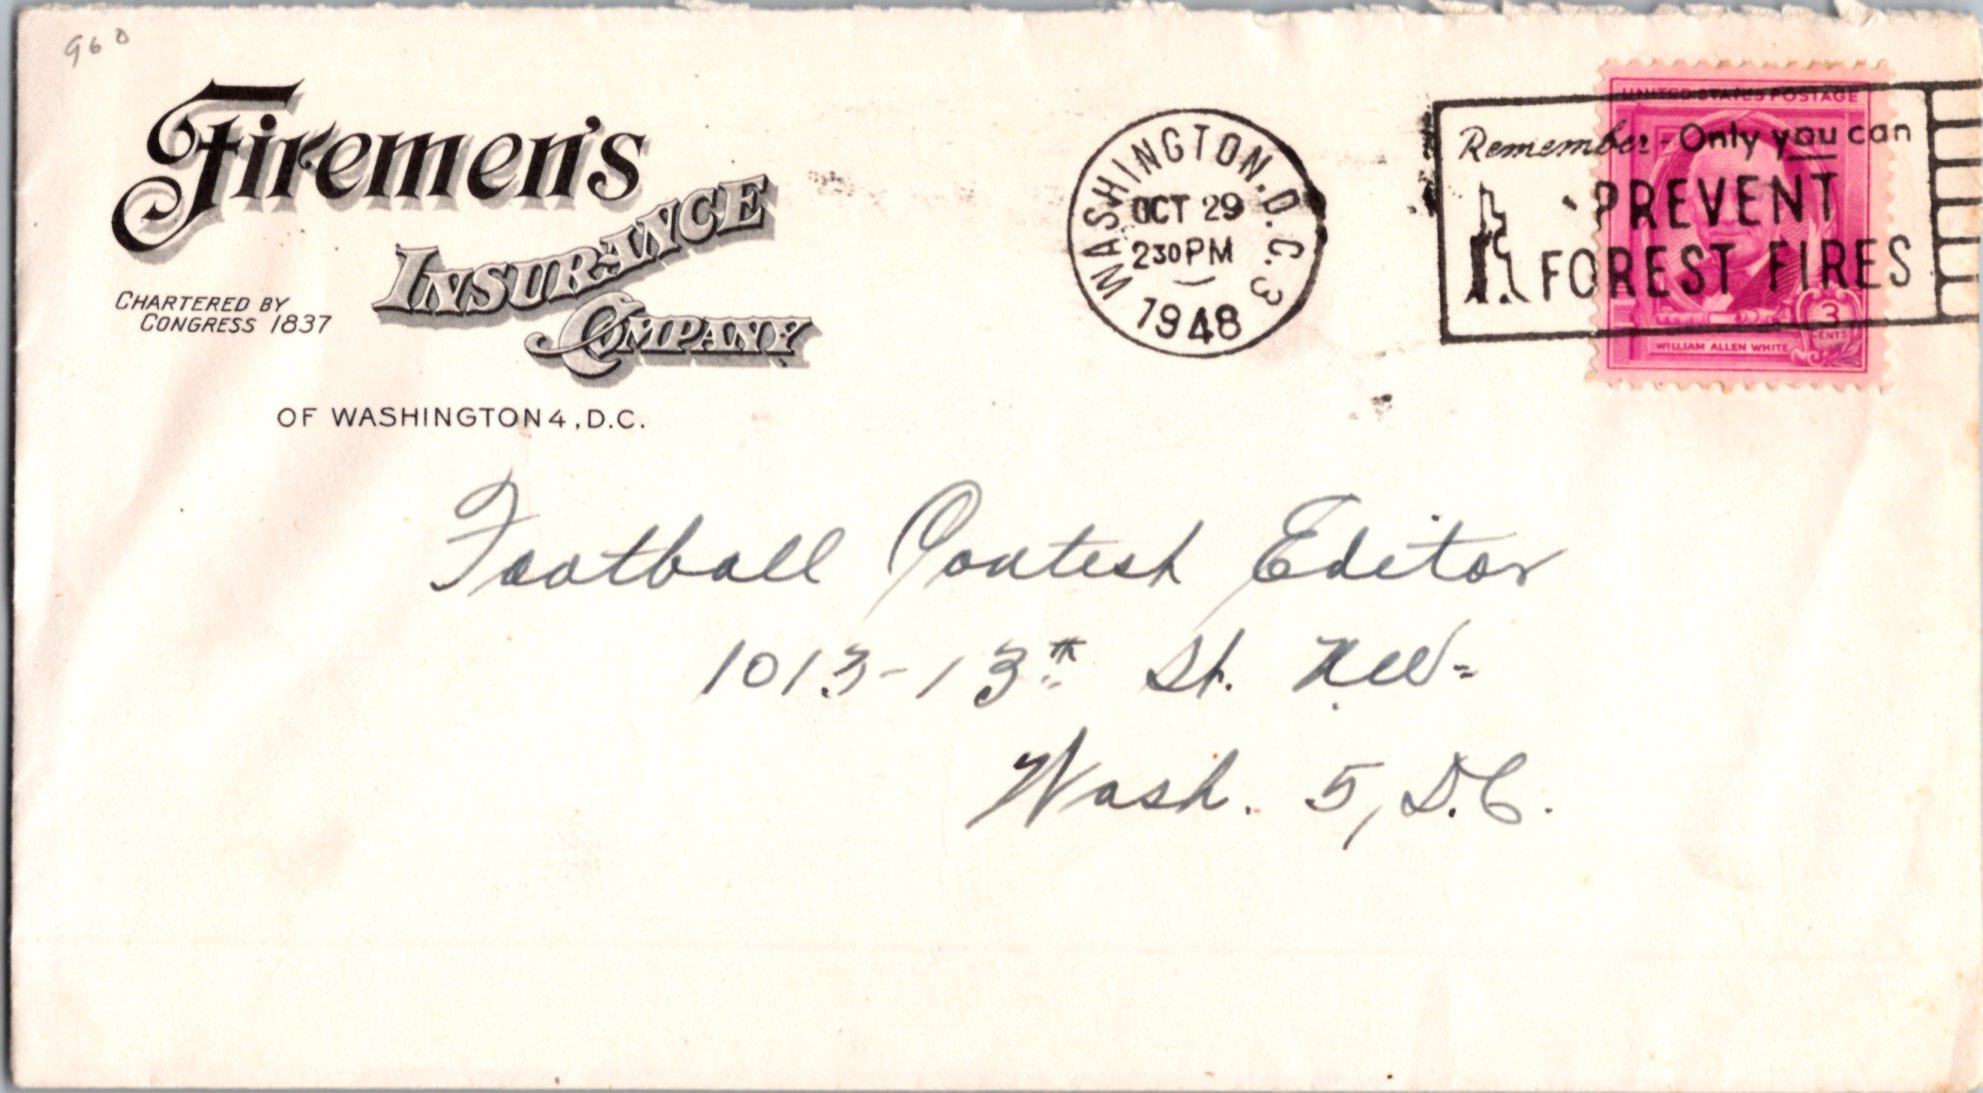 960
Firemen's
INSURANCE
COMPANY
CHARTERED BY
CONGRESS 1837
OF WASHINGTON 4, D.C.
WASHINGTON, D.C. 3
OCT 29
230 PM
1948
Remember - Only you can
PREVENT
FOREST FIRES
UNITED STATES POSTAGE
3
CENTS
WILLIAM ALLEN WHITE
Football Contest Editor
1013-13th St. NW-
Wash. 5, D.C.